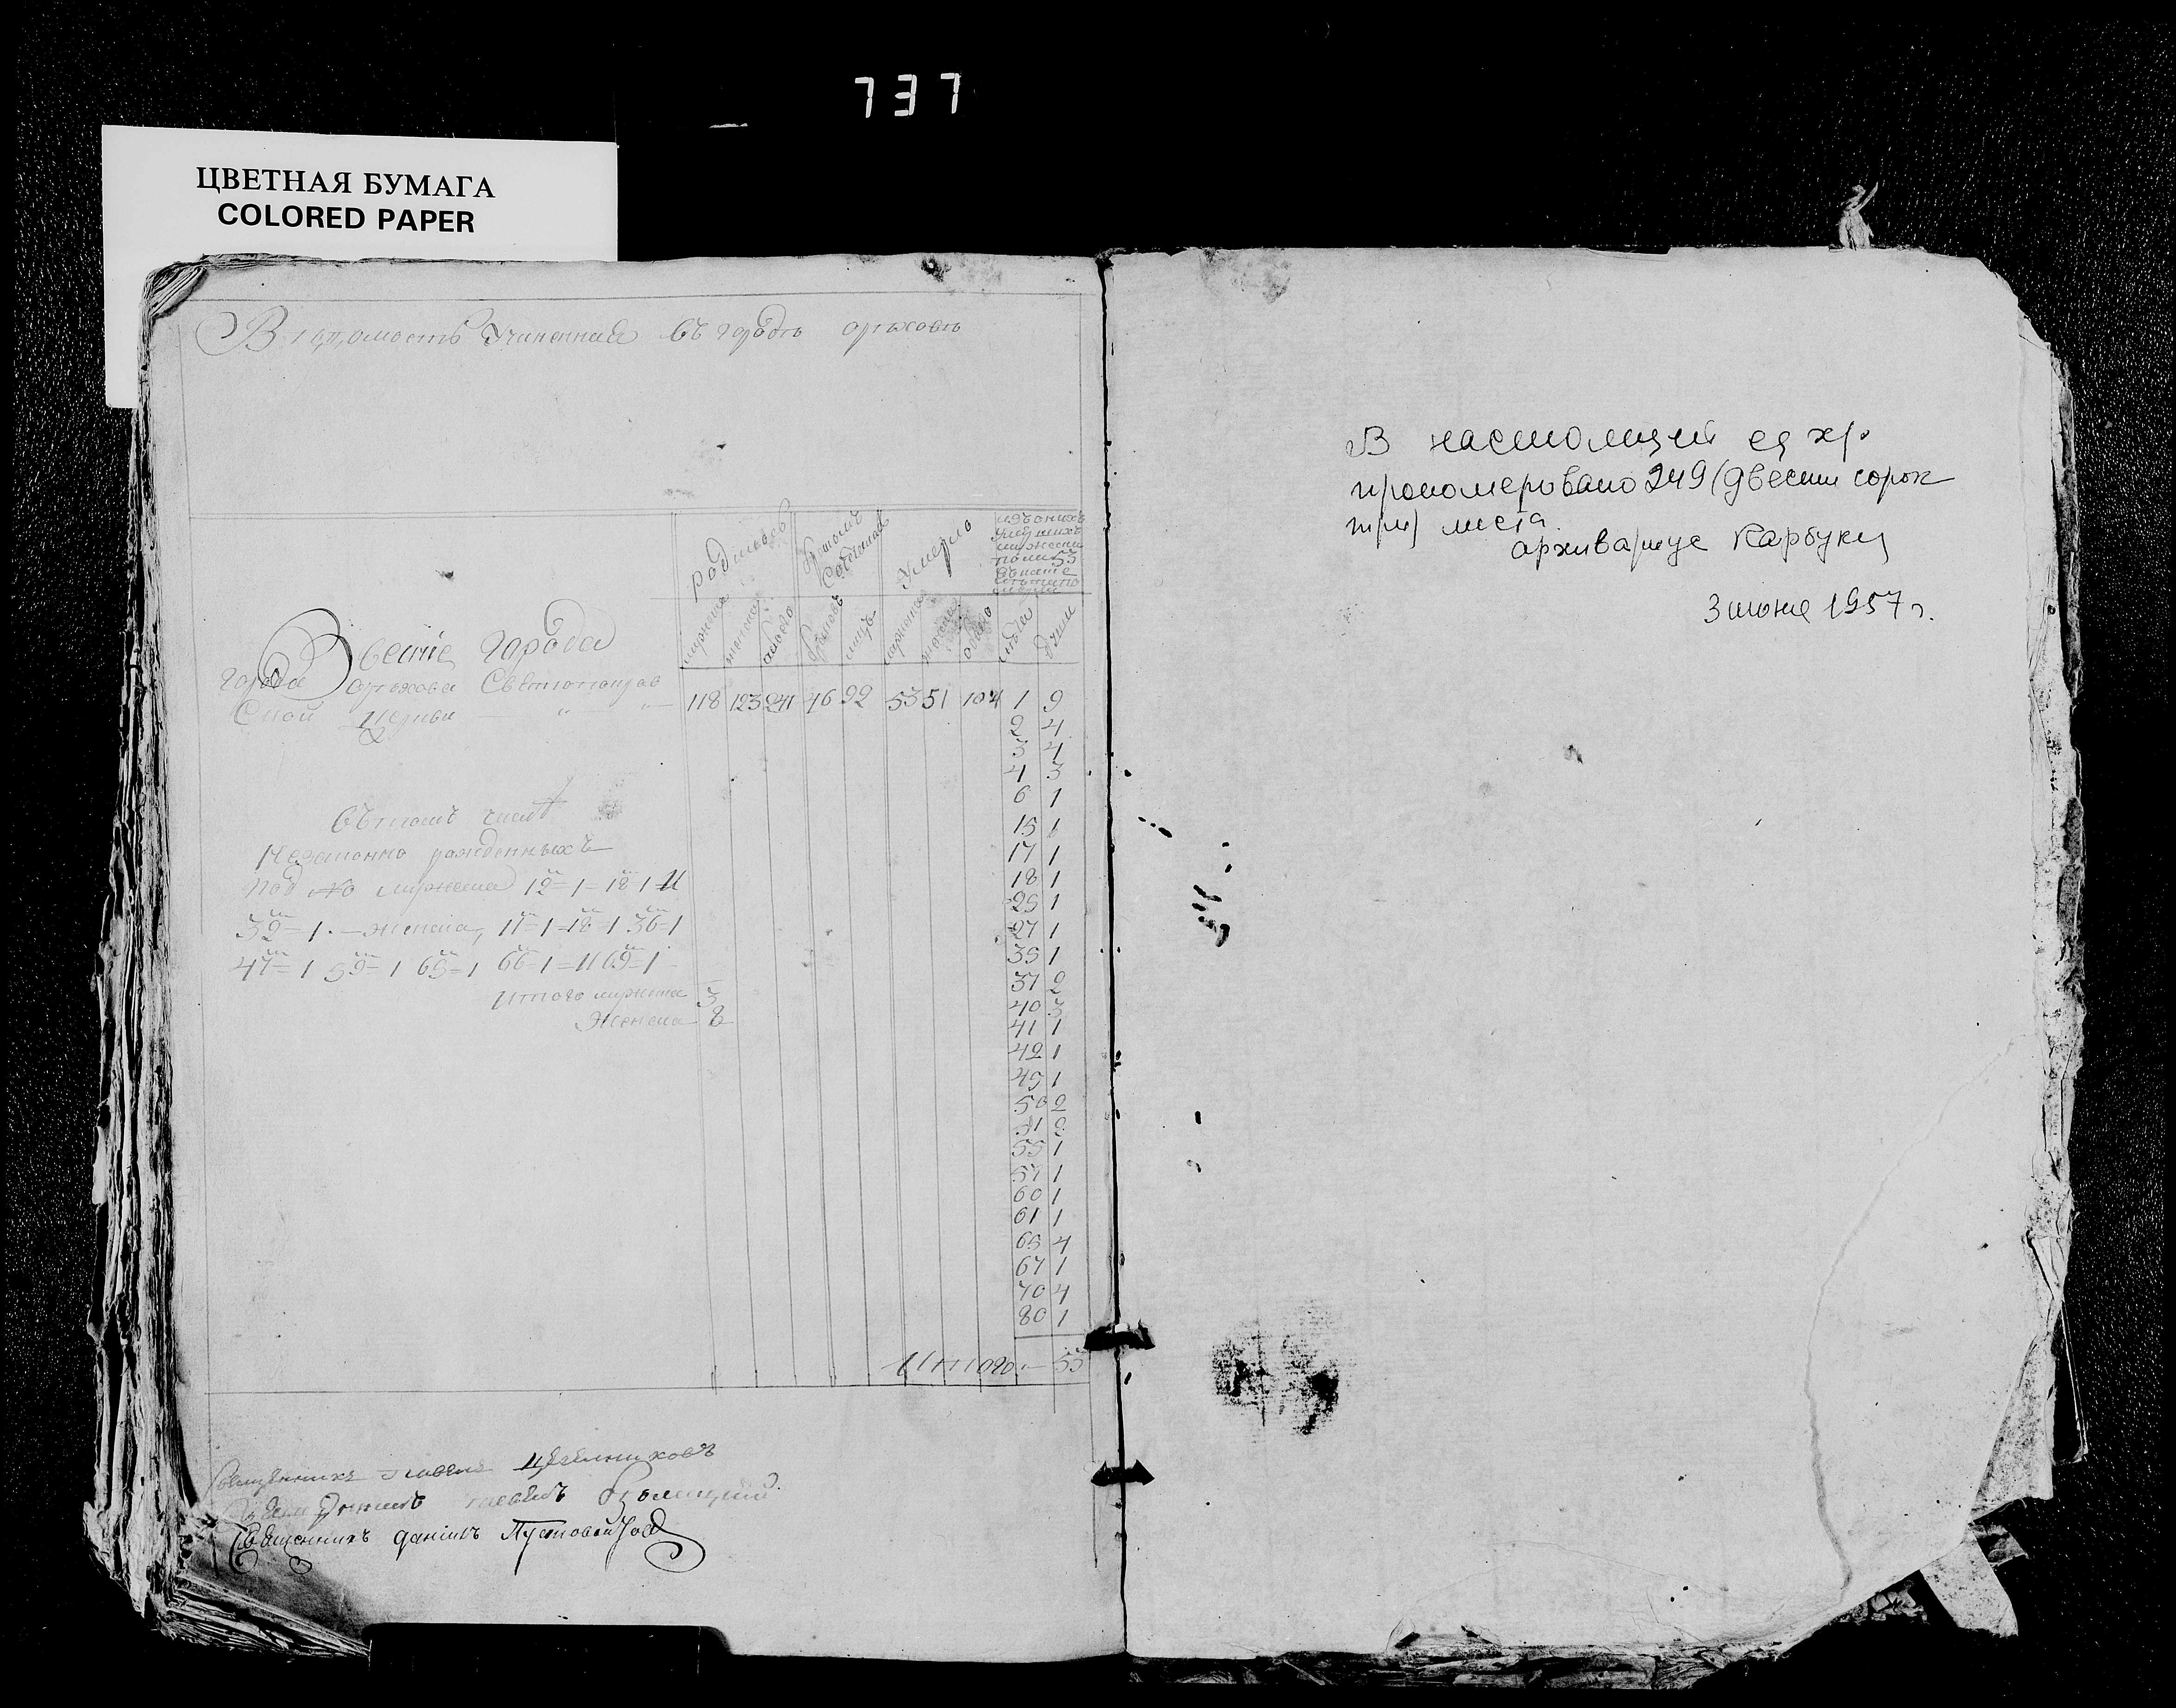 737
ЦВЕТНАЯ БУМАГА
COLORED PAPER
Вѣдомость Учиненная въ городѣ орѣховѣ
родилось
бракомъ Собчталось
Умерло
изъ оныхъ умершихъ мужеска полу 53
мужеска
женска
обоего
браковъ
лицъ
мужеска
женска
обоего
лѣта
Звание города
города орѣхова Свѣтопокров
Ской Церкви — " — " —
118 123 241 46 92 53 51 104 1 9
2 4
3 4
4 3
6 1
15 1
17 1
18 1
25 1
27 1
35 1
37 2
40 3
41 1
42 1
45 1
50 2
51 2
55 1
57 1
60 1
61 1
65 4
67 1
70 4
80 1
Итого — 53
Въ томъ числѣ
Незаконно рожденныхъ
Под No мужеска 12=1=18=1 И
39=1 — женска, 11=1=18=1 36=1
47=1 59=1 65=1 66=1=И 69=1
Итого мужеска 3
Женска 8
Священникъ Павелъ
Священникъ
Священникъ даніилъ Пустовойтов
В настоящей ед хр.
пронумеровано 249 (двести сорок
листа
архивариус Карбуки
3 июня 1957 г.